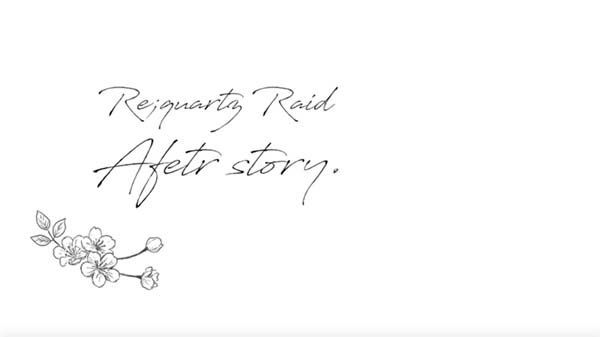 Re;quartz Raid
Afetr story.